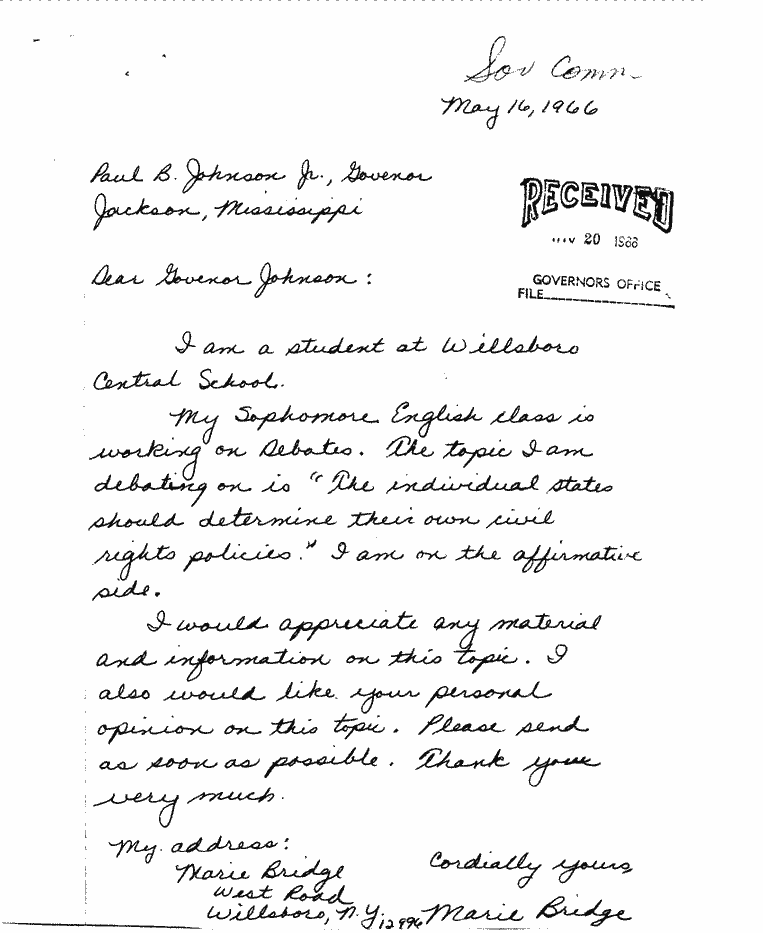 Sov Comm
May 16, 1966
Paul B. Johnson Jr., Govenor
Jackson, Mississippi
RECEIVED
20 1966
GOVERNORS OFFICE
FILE
Dear Govenor Johnson:
I am a student at Willsboro
Central School.
My Sophomore English class is
working on Debates. The topic I am
debating on is "The individual states
should determine their own civil
rights policies." I am on the affirmative
side.
I would appreciate any material
and information on this topic. I
also would like your personal
opinion on this topic. Please send
as soon as possible. Thank you
very much.
My address:
Marie Bridge
West Road
Willsboro, N.Y. 12996
Cordially yours,
Marie Bridge